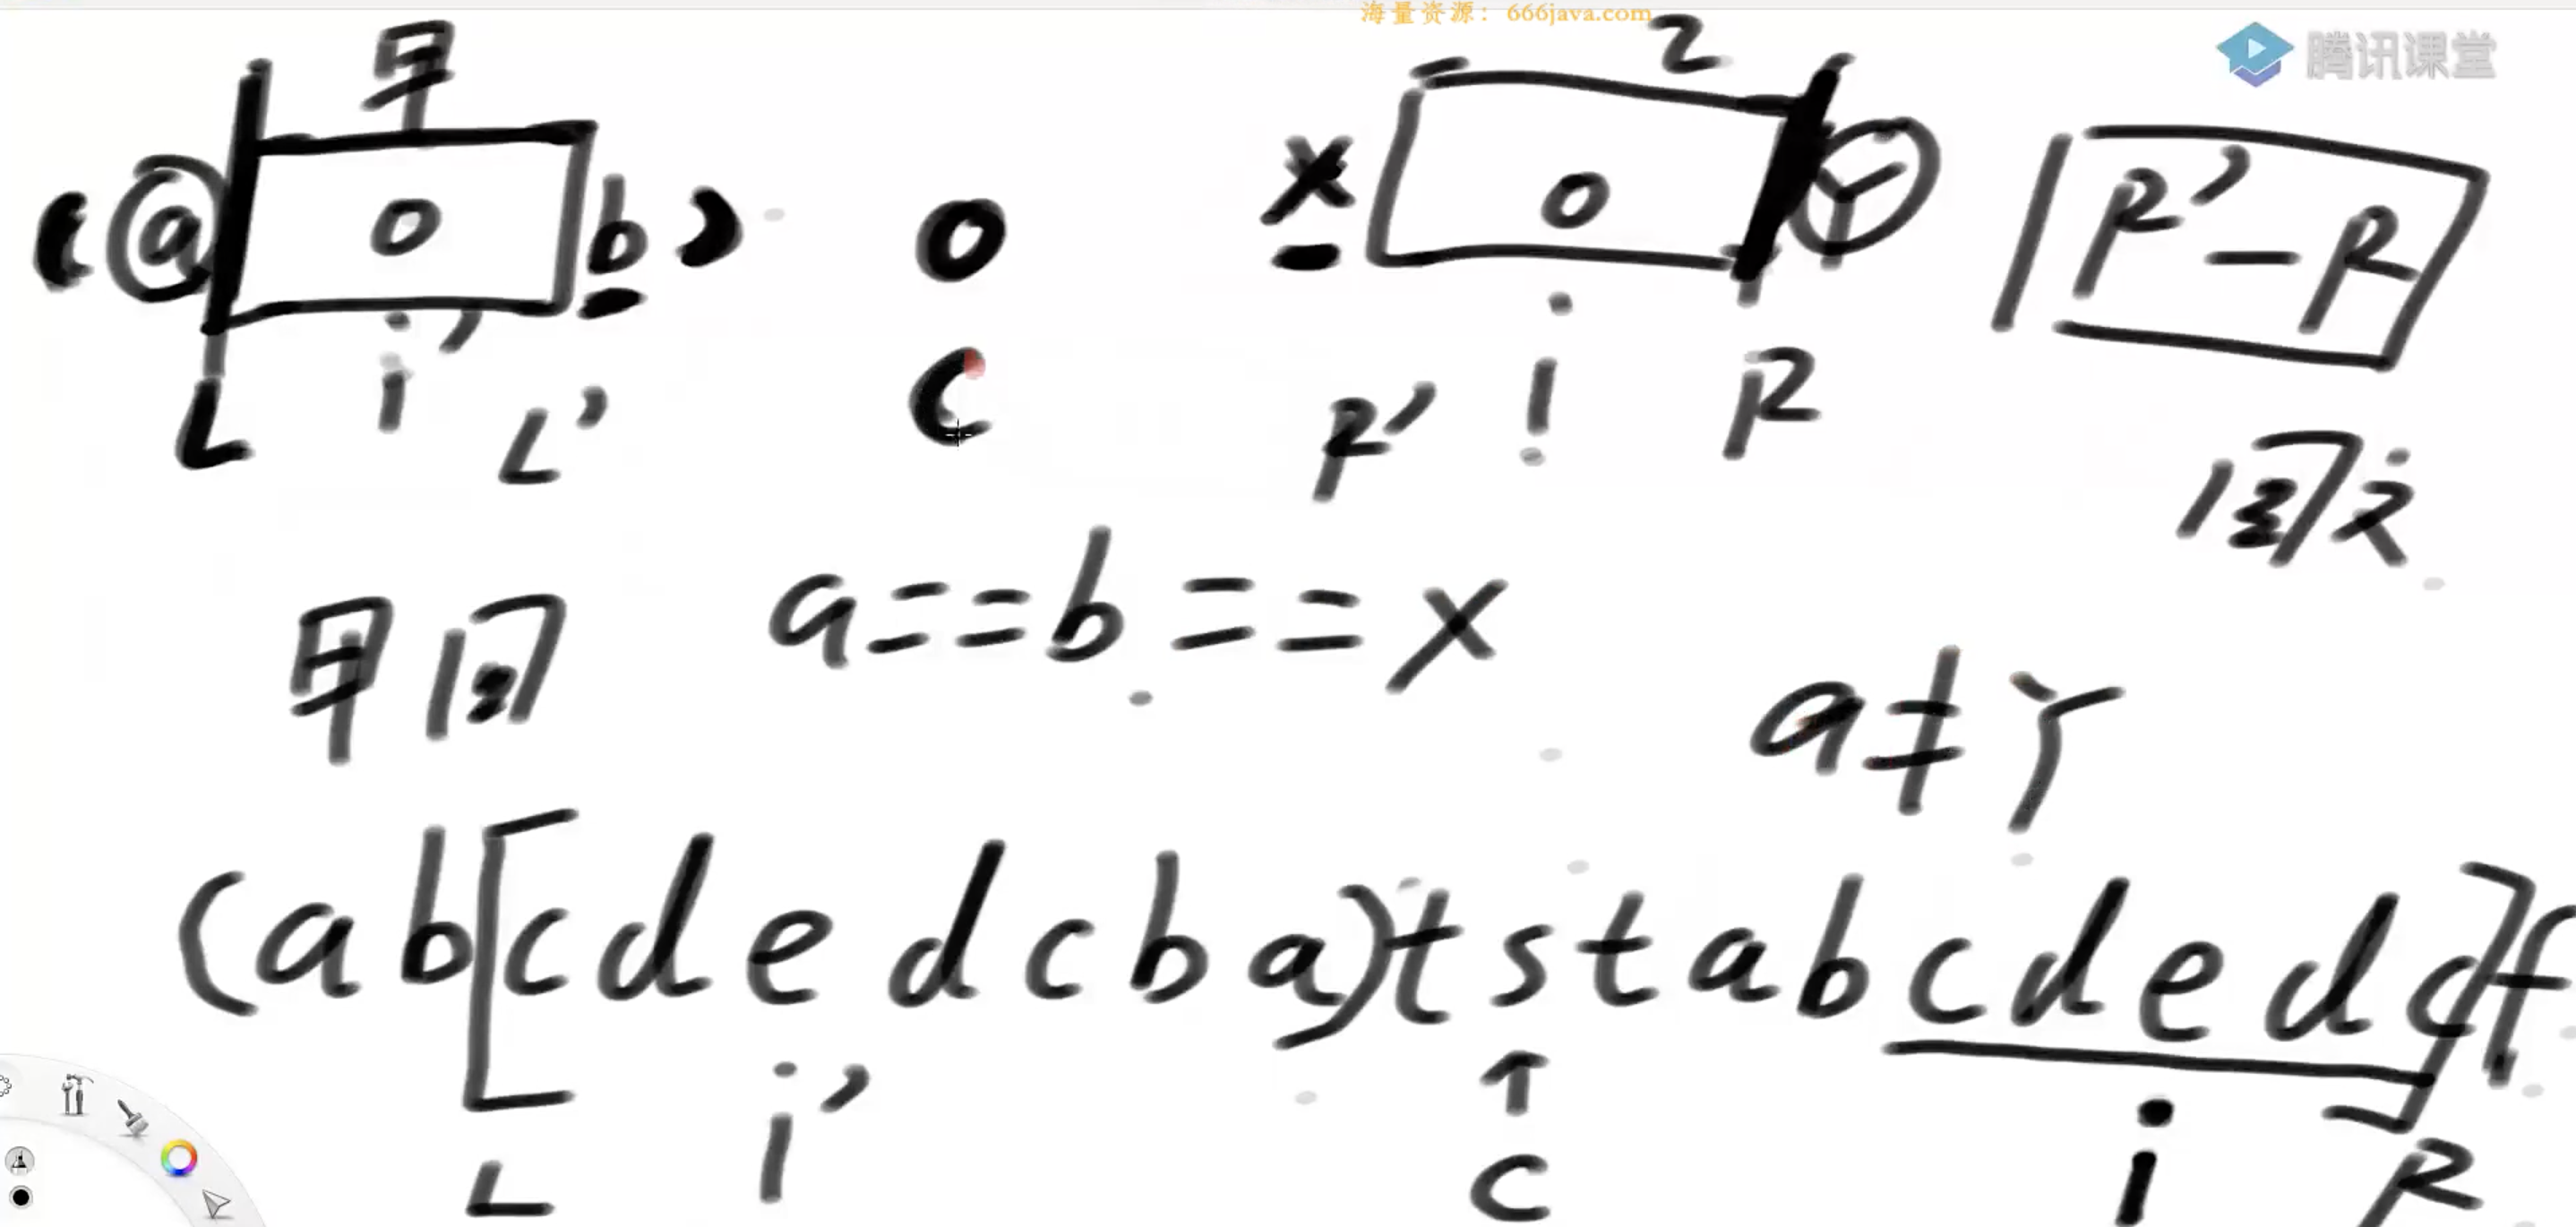 海量资源：666java.com
腾讯课堂
甲 乙
( a 0 b ) 0 x 0 Y R' - R
i' i
L L' C R' R
回文
甲回 a==b==x
a≠Y
(ab[cdedcba)tstabcdedc]f
L i' ↑ C i R